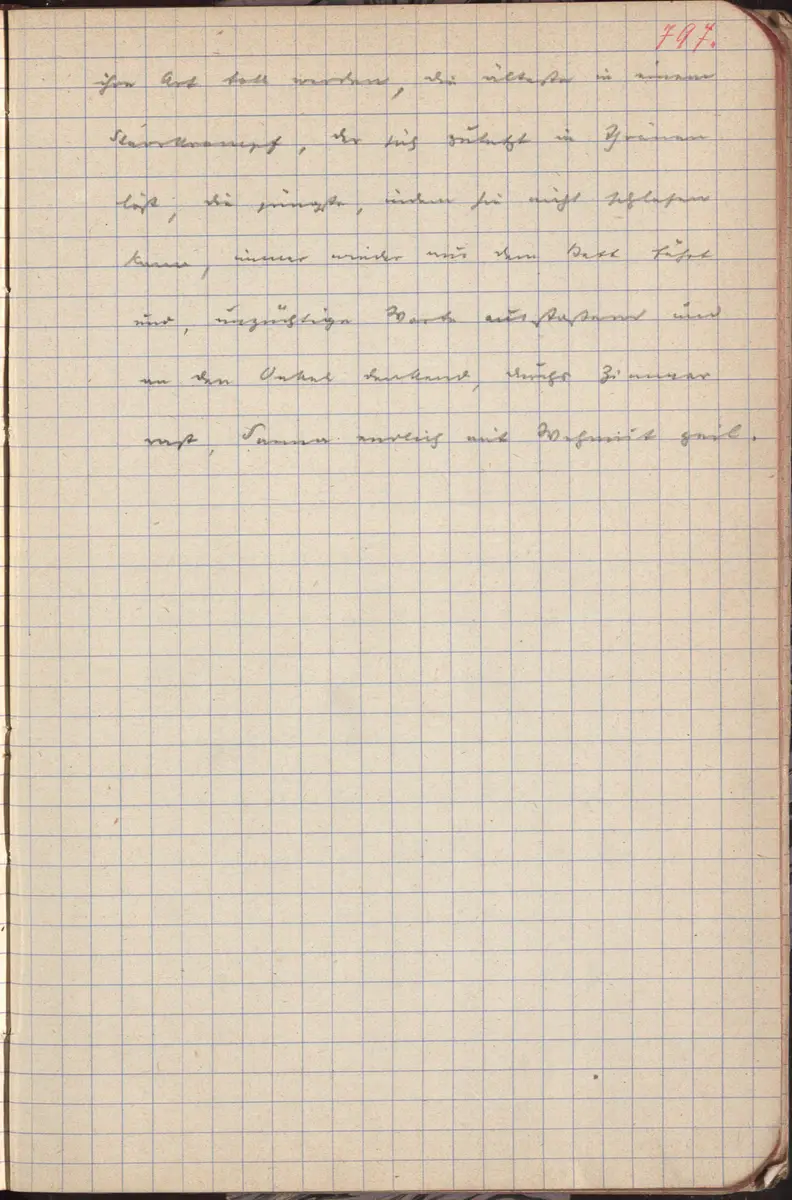 797.
ihre Art toll werden, die älteste in einem
Starrkrampf, der sich zuletzt in Thränen
löst, die jüngste, indem sie nicht schlafen
kann, immer wieder aus dem Bett fährt
und, unzüchtige Worte ausstoßend und
an den Onkel denkend, durchs Zimmer
rast, Sanna endlich mit Wehmut geil.